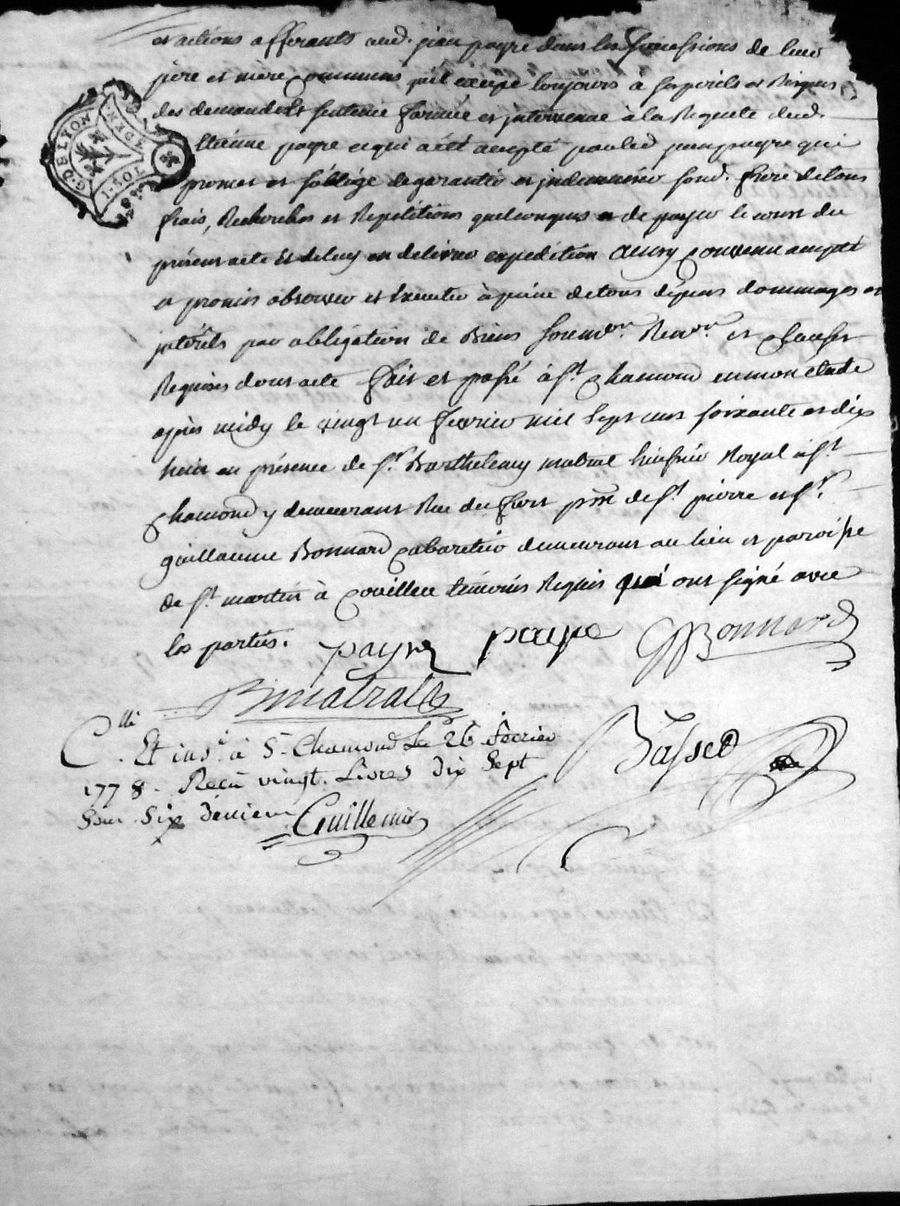 et actions afferants aud. jean payre dans les successions de leur
père et mère communs qu'il exerce toujours à ses perils et Risques
des demandes et sentence formée et intervenue à la Requete dud.
Etienne payre ce qui a été accepté par led. jean payre qui
promet et s'oblige de garantir et indemniser sond. frere de tous
frais, Recherches et Repetitions quelconques et de payer le cout du
présent acte et de luy en delivrer expedition Ainsy convenu accepté
et promis observer et Executer à peine de tous dépens dommages et
intérêts par obligation de Biens soumon. Renon. et Clauses
Requises dont acte fait et passé à St. Chamond en mon etude
après midy le vingt un fevrier mil sept cent soixante et dix
huit en présence de sr. Barthelemy matrat huissier Royal à st.
Chamond y demeurant Rue du fort psse. de st. pierre et sr.
guillaume Bonnard Cabaretier demeurant au lieu et paroisse
de st. martin à Coailleu témoins Requis qui ont signé avec
les parties.
payre payre GBonnard
Bmatrat
Clle. Et ins. à St. Chamond Le 26 fevrier
1778. Recu vingt Livres dix Sept
Sous Six deniers
Guillemin
Basset
G. D. LYON